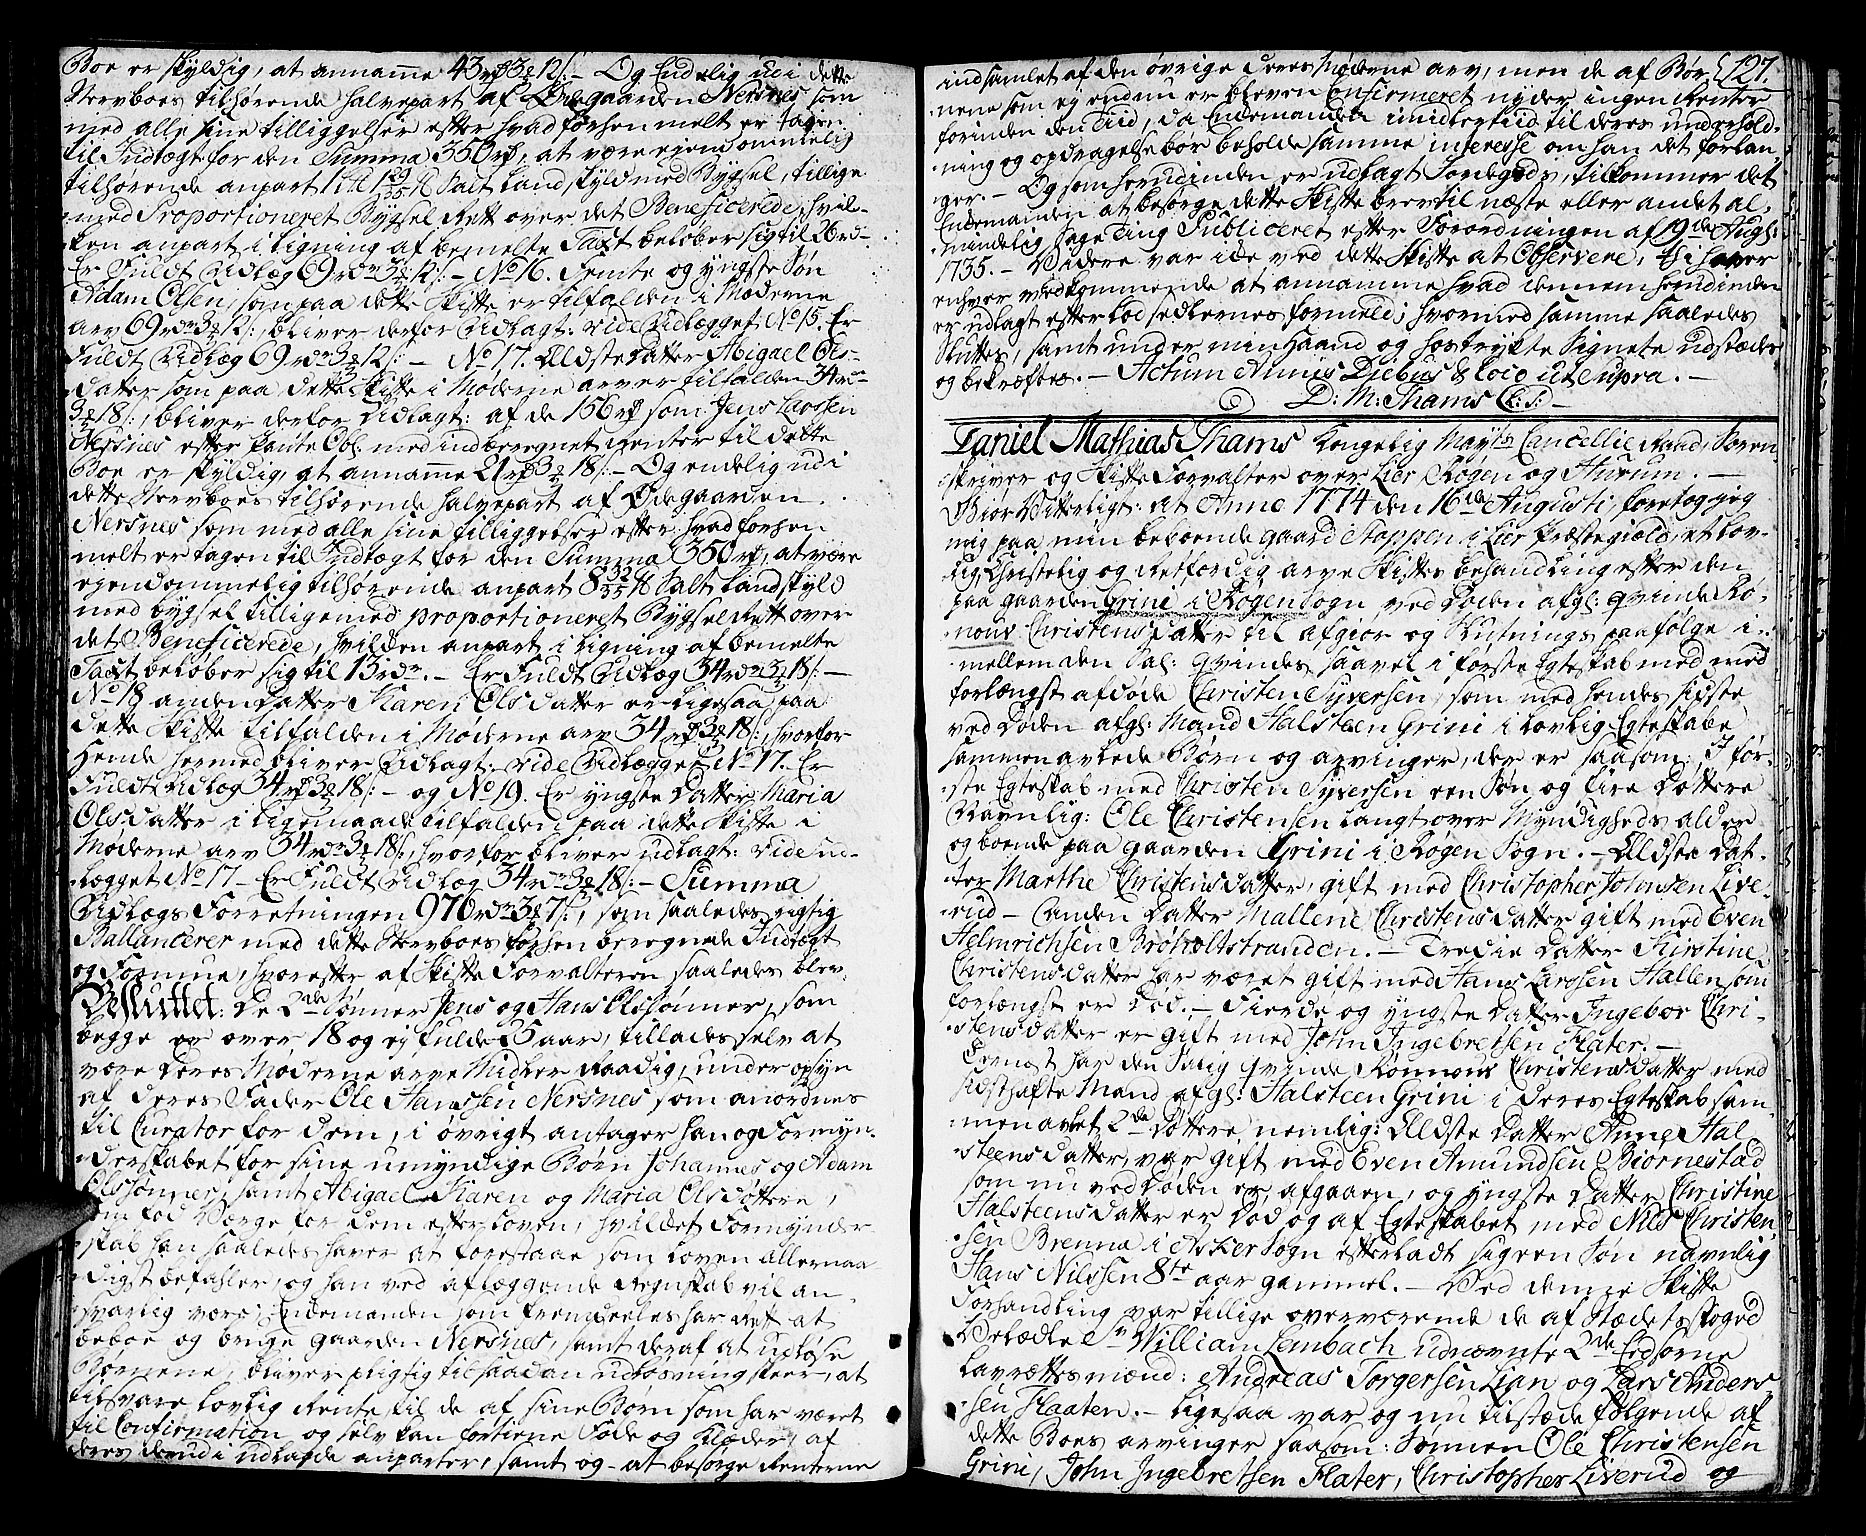 Boe er skyldig, at annamme 43 rd 3 2 12 s:- Og Endelig udi dette
Sterfboes tilhørende halvepart af Ødegaarden Nersnes som
med alle sine tilliggelser efter hvad forhen melt er tagen
til Indtægt for den Summa 350 rd, at være ejendommelig
tilhørende anpart
Salt Landskyld med Bygsel, tillige
med Proportioneret Bygsel Rett over det Beneficerede, hvil-
ken anpart i ligning af bemelte Taxt beløber sig til 26 rd
Er Fuldt Udlæg 69 rdr 3 2 12 s:- No 16. Femte og yngste Søn
Adam Olsen, som paa dette Skifte er tilfalden i Møderne
arv 69 rdr 3 2 12 s: bliver derfor Udlagt: vide Udlægget No 15. Er
Fuldt Udlæg 69 rdr 3 2 12 s:- No 17. Ældste Datter Abigael Ols-
datter som paa dette Skifte i Møderne arver tilfalden 34 rdr
3 2 18 s:, bliver derfor Udlagt: af de 156 rd som Jens Larssen
Nersnes efter Pante Obl: med indberegnet Renter til dette
Boe er skyldig, at annamme 21 rd 3 2 18 s:- Og endelig udi
dette Stervboes tilhørende halvepart af Ødegaarden
Nersnes som med alle sine tilliggelser efter hvad forhen
melt er tagen til Indtægt for den Summa 350 rd, at være
ejendommelig tilhørende anpart 8 Salt Landskyld
med bygsel tilligemed proportioneret Bygsel Rett over
det Beneficerede, hvilken anpart i ligning af bemelte
Taxt beløber sig til 13 rdr.- Er Fuldt Udlæg 34 rdr 3 2 18 s:-
No 18 anden Datter Karen Olsdatter er ligesaa paa
dette Skifte tilfalden i Møderne arv 34 rd 3 2 18 s:, hvorfor
Hende hermed bliver Udlagt: vide Udlægget No 17. Er
Fuldt Udlæg 34 rd 3 2 18 s:- og No 19. Er yngste Datter Maria
Olsdatter i ligemaade tilfalden paa dette Skifte i
Møderne arv 34 rdr 3 2 18 s:, hvorfor bliver udlagt: vide Ud-
lægget No 17- Er Fuldt Udlæg 34 rdr 3 2 18 s:- Summa
Udlægs Forretningen 976 rdr 3 2 7 s:, som saaledes rigtig
Ballancerer med dette Sterfboes forhen beregnede Indtægt
og Formue, hvorefter af Skifte Forvalteren saaledes blev
Besluttet: De 2de Sønner Jens og Hans Olssønner, som
begge er over 18 og ej fulde 25 aar, tillades selv at
være deres Møderne arve Midler Raadig, under opsyn
af deres Fader Ole Hanssen Nersnes som anordnes
til Curator for dem, i øvrigt antager han og Formyn-
derskabet for sine umyndige Børn Johannes og Adam
Olssønner, samt Abigael Karen og Maria Olsdøttere,
som fød Værge for dem efter Loven, hvilket Formynder-
skab han saaledes haver at forestaae som Loven allernaa-
digst befahler, og han ved aflæggende Regnskab vil an-
svarlig være; Enkemanden som fremdeeles har Rett at
beboe og bruge gaarden Nersnes, samt deraf at udløse
Børnene, bliver pligtig til saadan udløsning skeer, at
tilsvare lovlig Rente, til de af sine Børn som har været
til Confirmation og selv kan fortiene Føde og Klæder, af
deres derudi udlagde anparter, samt og at besørge Renterne
127.
indsamlet af den øvrige deres Møderne arv, men de af Bør-
nene som ej endnu er bleven Confirmeret nyder ingen Renter
forinden den Tiid, da Enkemanden imidlertiid til deres underhold-
ning og opdragelse bør beholde samme interesse om han det forlan-
ger.- Og som herudinden er udlagt Jordegods, tilkommer det
Enkemanden at besørge dette Skifte brev til næste eller andet al-
mindelig Sage Ting Publiceret efter Forordningen af 19de Augs:
1735.- Videre var icke ved dette Skifte at Observere, thi haver
enhver vedkommende at annamme hvad dennem herudinden
er udlagt efter Lod sedlernes formeld; hvormed samme saaledes
sluttes, samt under min Haand og hostrykte Signete udstædes
og bekræftes.- Actum Annis Diebus & Loco ut Supra.-
D: M: Thams L: S:-
Daniel Mathias Thams Kongelig Mayts Cancellie Raad, Soren-
skriver og Skifte Forvalter over Lier Røgen og Hurum.-
Giør Vitterligt: at Anno 1774 den 16de Augusti, foretog jeg
mig paa min beboende gaard Stoppen i Lier Præstegield, et lov-
lig, Christelig og Retferdig arve Skiftes behandling efter den
paa gaarden Grini i Røgen Sogn ved Døden afgl: qvinde Rø-
nons Christensdatter til afgiør og Slutnings paafølge i-
mellem den Sal: qvindes saavel i første Egteskab med med
forlængst afdøde Christen Syversen, som med hendes sidste
ved Døden afgl: Mand Halsteen Grini i lovlig Egteskabe
sammenavlede Børn og arvinger, der er saasom: I før-
ste Egteskab med Christen Syversen een Søn og fire Døttere
Navnlig: Ole Christensen langt over Myndigheds alder
og boende paa gaarden Grini i Røgen Sogn.- Ældste Dat-
ter Marthe Christensdatter, gift med Christopher Johnsen Live-
rud- anden Datter Mallene Christensdatter gift med Even
Helmrichsen Brøholtstranden.- Tredie Datter Kirstine
Christensdatter har været gift med Hans Larssen Hallen som
forlængst er Død.- Fierde og yngste Datter Ingebor Chri-
stensdatter er gift med John Ingebretsen Flater.-
Dernæst har den Salig qvinde Rønnons Christensdatter med
sidsthafte Mand afgl: Halsteen Grini i deres Egteskab sam-
menavlet 2de Døttere nemlig: Ældste Datter Anne Hal-
steensdatter, var gift med Even Amundsen Biørnestad
som nu ved Døden er afgaaen, og yngste Datter Christine
Halsteensdatter er Død og af Egteskabet med Nils Christen-
sen Brenna i Asker Sogn efterladt sig een Søn navnlig
Hans Nilssen 8te aar gammel.- Ved denne Skifte
Forhandling var tillige overværende de af Stædets Foged
Velædle Sr William Lembach udnævnte 2de Eedsorne
Lavrættesmænd: Andreas Torgersen Lian og Lars Anders-
sen Flaaten.- Ligesaa var og nu tilstæde følgende af
dette Boes arvinger saasom: Sønnen Ole Christensen
Grini, John Ingebretsen Flater, Christopher Liverud og